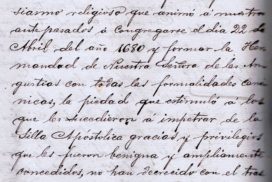 siasmo religioso que animó a nuestros
antepasados á congregarse el dia 22 de
Abril del año 1680 y formar la Her-
mandad de Nuestra Señora de las An-
gustias con todas las formalidades canó-
nicas, la piedad que estimuló a los
que les sucedieron á impetrar de la
Silla Apostólica gracias y privilegios
que les fueron benigna y ampliamente
concedidos, no han decrecido con el tras